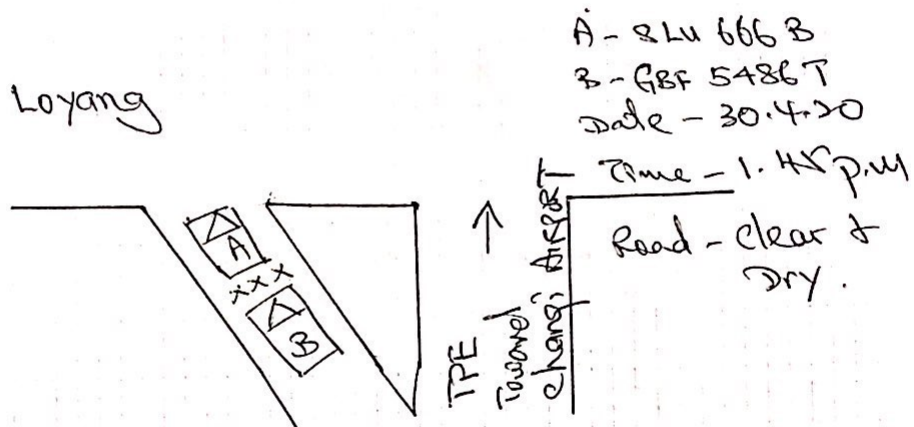 A - SLU 666 B
B - GBF 5486 T
Date - 30.4.20
Time - 1.45 p.m
Road - Clear &
Dry.
Loyang
A
xxx
B
TPE
Toward
Changi AIRPORT